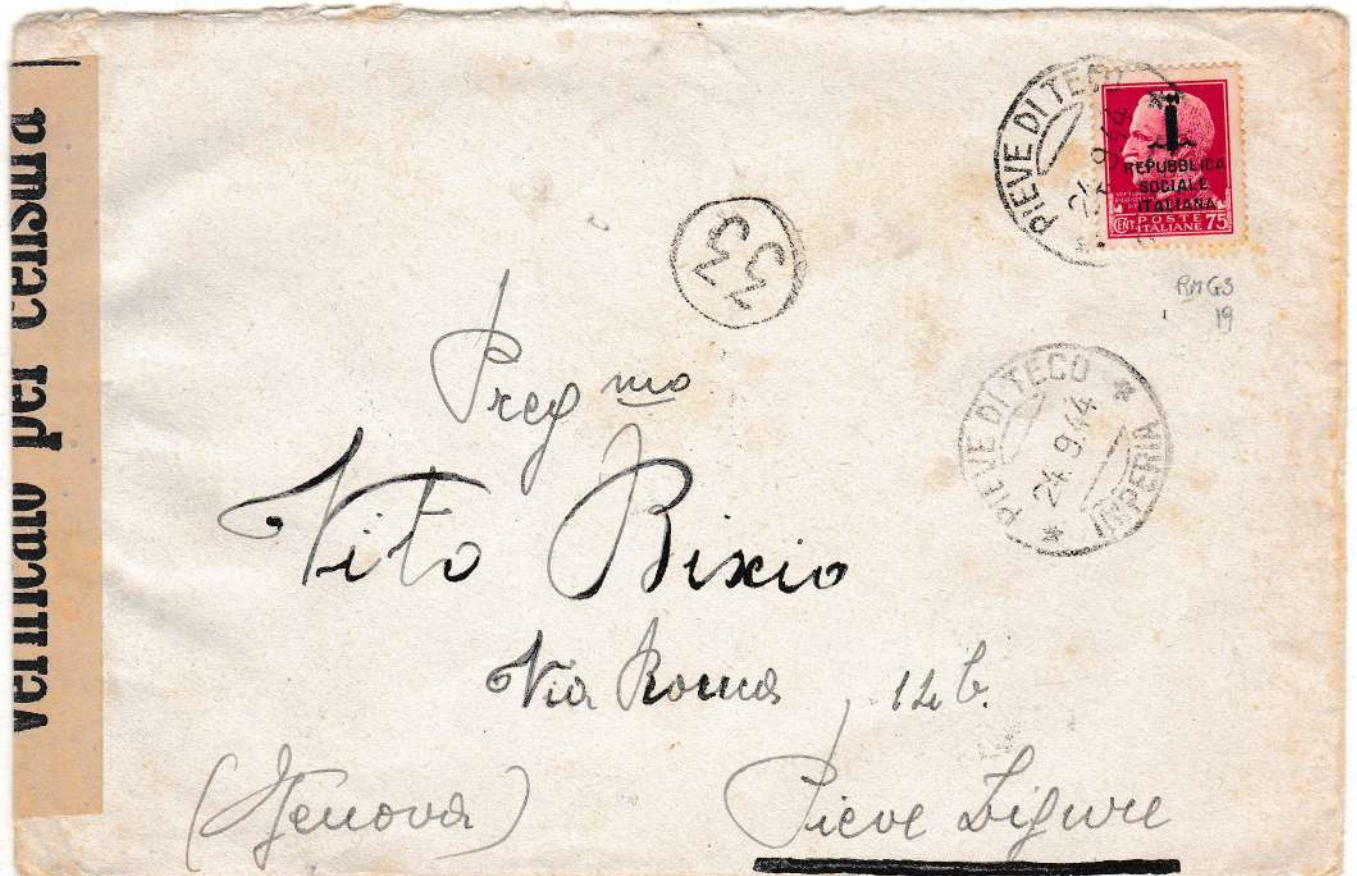 Verificato per censura
PIEVE DI TECO
REPUBBLICA
SOCIALE
ITALIANA
CENT. POSTE 75
ITALIANE
RMGS
19
PIEVE DI TECO
24.9.44
IMPERIA
Preg mo
Vito Bixio
Via Roma
Pieve Ligure
(Genova)